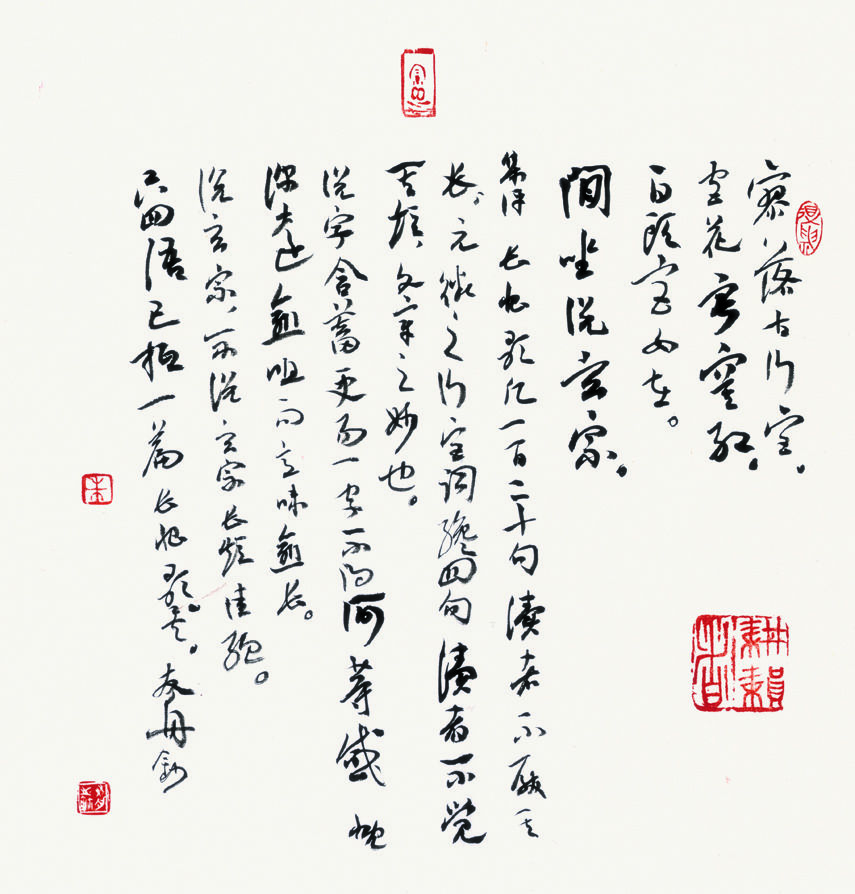 寥落古行宫。
宫花寂寞红。
白头宫女在。
間坐说玄宗。
集评 长恨歌凡一百二十句讀者不厌其
长，元微之行宫词纔四句讀者不觉
其短，文章之妙也。
说字含蓄更易一字不得何等感慨
深远愈咀而意味愈长。
说玄宗，不说玄宗长短佳绝。
只四语已抵一篇长恨歌矣。